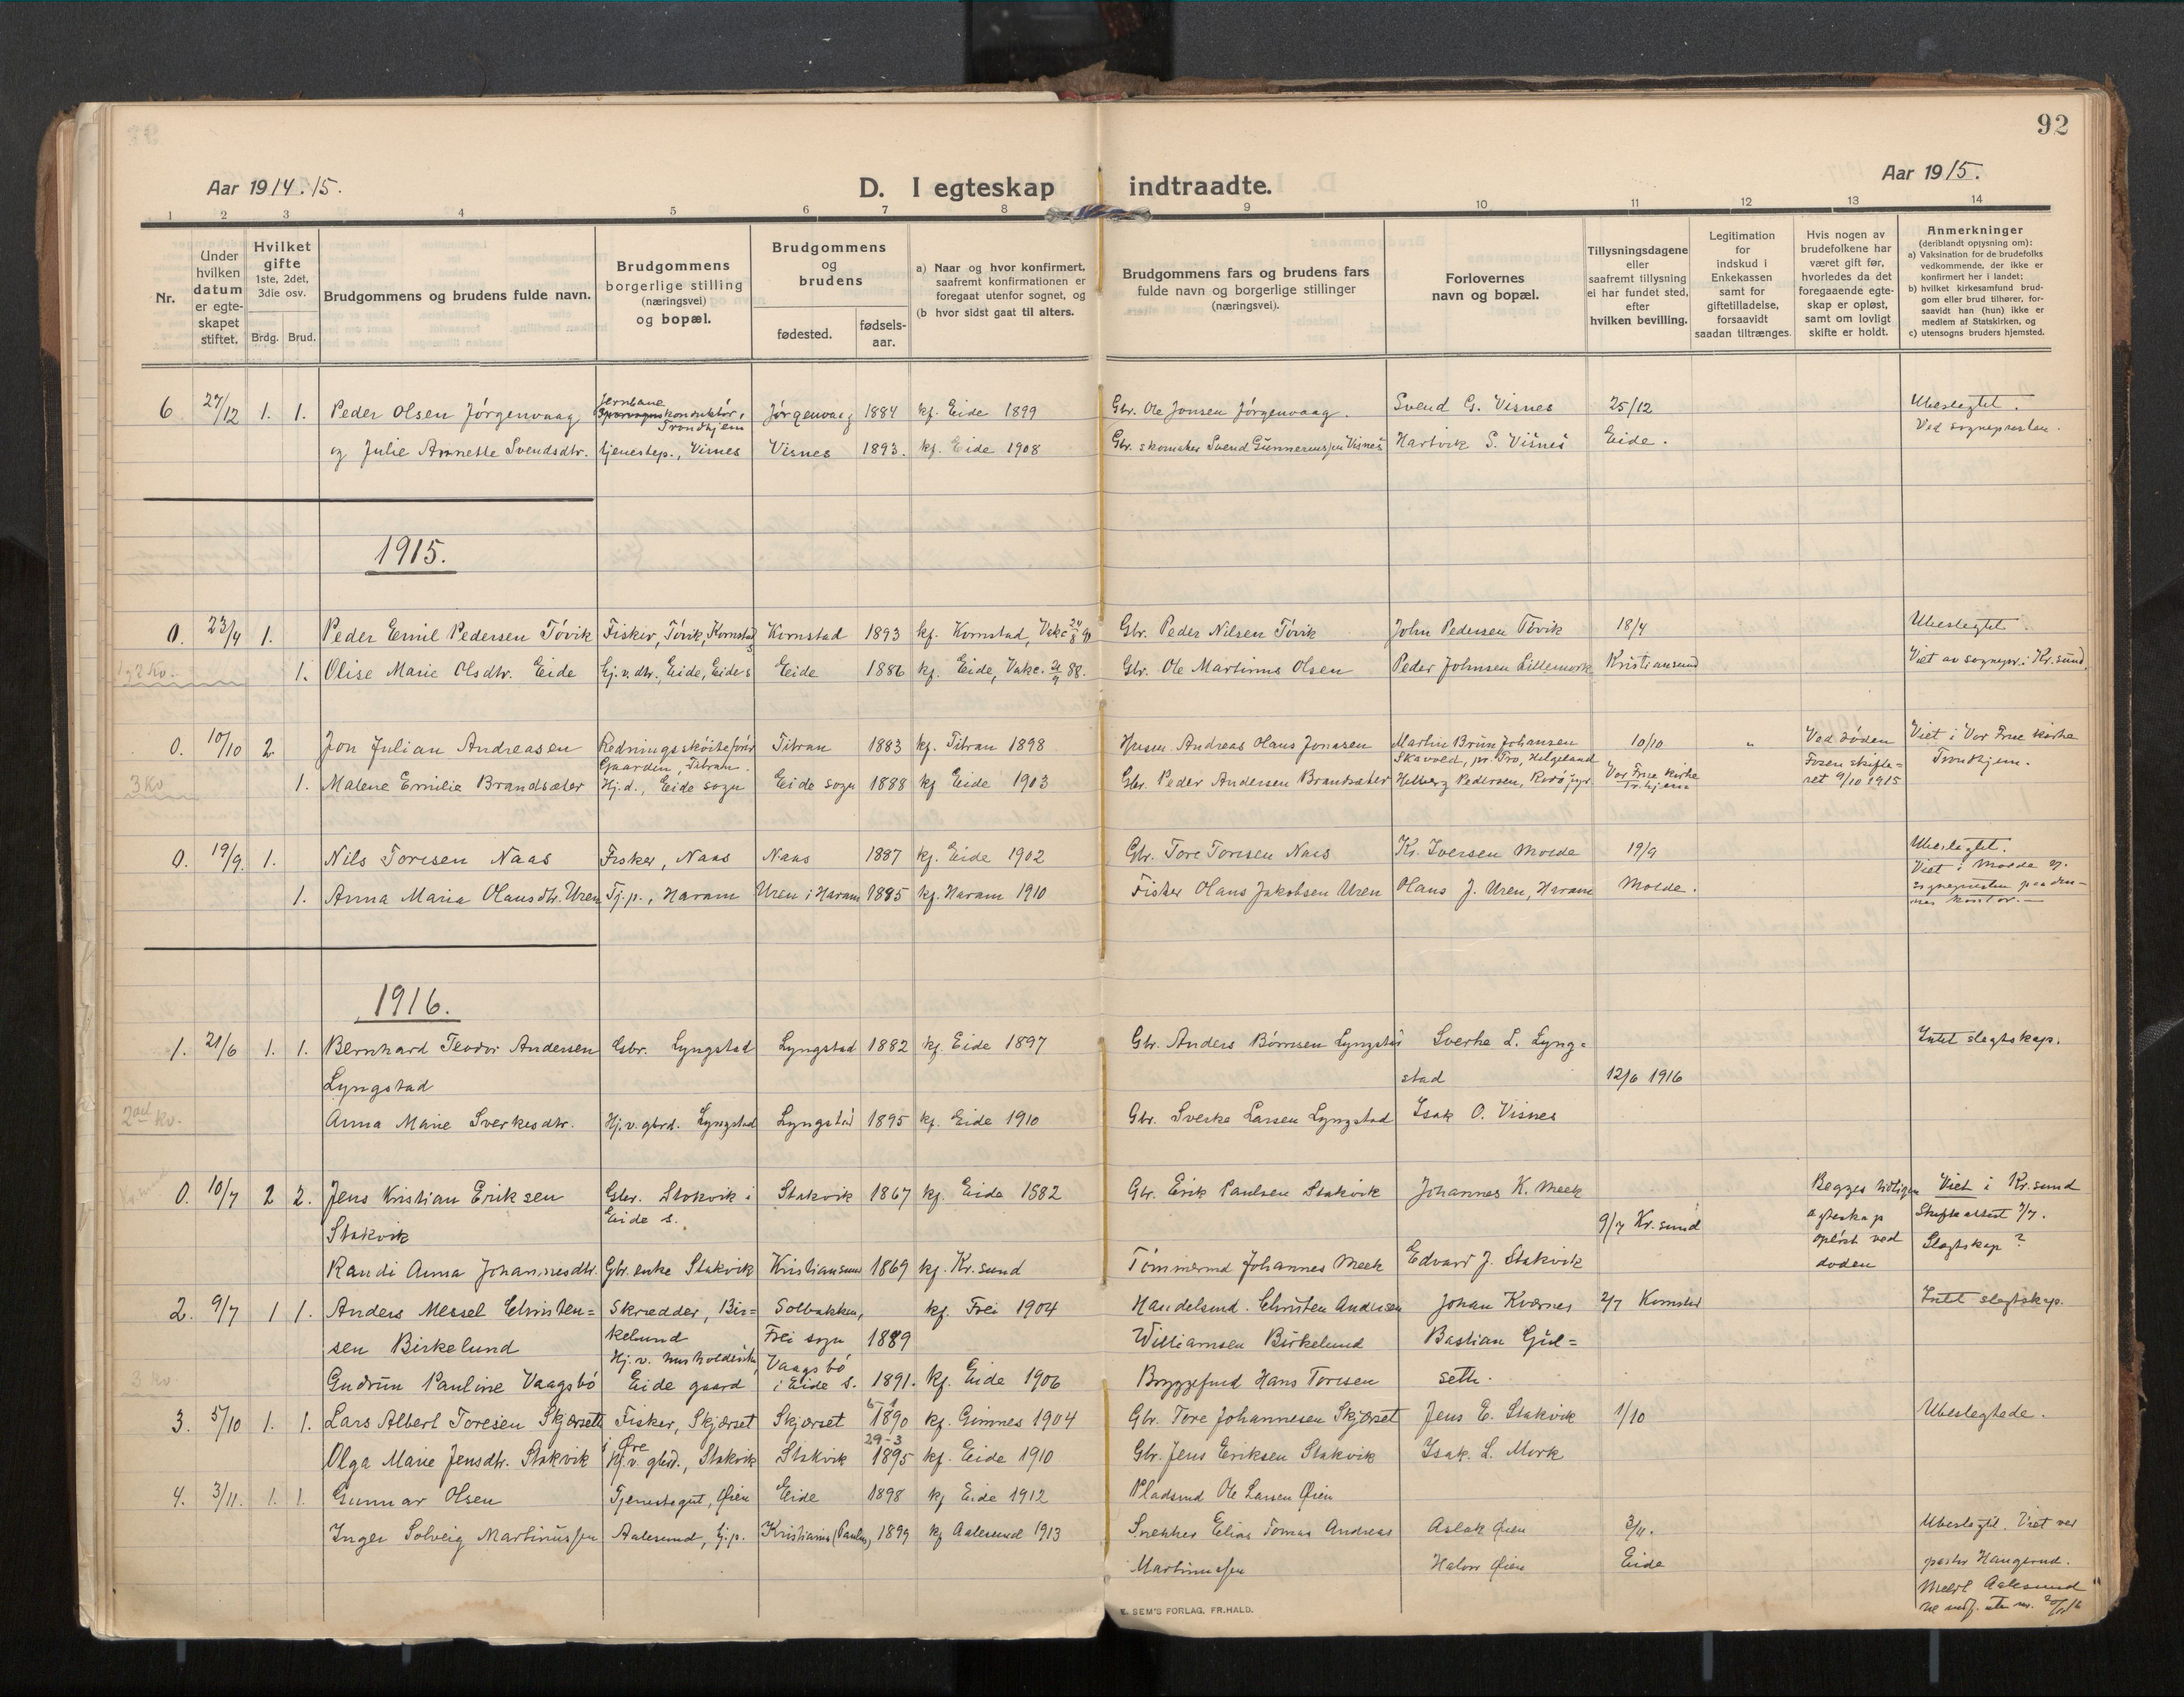 92
Aar 1914.15.
D. I egteskap indtraadte.
Aar 1915.
1 2 3 4 5 6 7 8 9 10 11 12 13 14
Nr.
Under hvilken datum er egte-skapet stiftet.
Hvilket gifte 1ste, 2det, 3die osv.
Brdg. Brud.
Brudgommens og brudens fulde navn.
Brudgommens borgerlige stilling (næringsvei) og bopæl.
Brudgommens og brudens
fødested.
fødsels-aar.
a) Naar og hvor konfirmert, saafremt konfirmationen er foregaat utenfor sognet, og
(b hvor sidst gaat til alters.
Brudgommens fars og brudens fars fulde navn og borgerlige stillinger (næringsvei).
Forlovernes navn og bopæl.
Tillysningsdagene eller saafremt tillysning ei har fundet sted, efter hvilken bevilling.
Legitimation for indskud i Enkekassen samt for giftetilladelse, forsaavidt saadan tiltrænges.
Hvis nogen av brudefolkene har været gift før, hvorledes da det foregaaende egte-skap er opløst, samt om lovligt skifte er holdt.
Anmerkninger
(deriblandt opysning om):
a) Vaksination for de brudefolks vedkommende, der ikke er konfirmert her i landet;
b) hvilket kirkesamfund brud-gom eller brud tilhører, for-saavidt han (hun) ikke er medlem af Statskirken, og
c) utensogns bruders hjemsted.
6 27/12 1. 1. Peder Olsen Jörgenvaag Jernbane konduktör, Trondhjem Jörgenvaag 1884 kf. Eide 1899 Gbr. Ole Jonsen Jörgenvaag. Svend G. Visnes 25/12 Ubeslegtet.
Ved sognepresten.
og Julie Annette Svendsdtr. tjenestep., Visnes Visnes 1893. kf. Eide 1908 Gbr. skomaker Svend Gunnerussen Visnes Hartvik S. Visnes Eide.
1915.
0. 23/4 1. Peder Emil Pedersen Tövik Fisker, Tövik, Kornstad Kornstad 1893 kf. Kornstad, Vakc. 24/8 Gbr. Peder Nilsen Tövik John Pedersen Tövik 18/4 Ubeslegtet.
1 Olise Marie Olsdtr. Eide Gj.v.dtr., Eide, Eide s Eide 1886 kf. Eide, Vakc. 88. Gbr. Ole Martinus Olsen Peder Johnsen Lillemork Kristiansund Viet av sognepr. i Kr.sund
0. 10/10 2 Jon Julian Andreasen Redningsskøitefører Gaarden, Titran. Titran 1883 kf. Titran 1898 Husm. Andreas Olaus Jonasen Martin Brun Johansen 10/10 " Ved döden Viet i Vor Frue kirke
Skavved, pr. Tro, Helgeland Fosen skifte= Trondhjem.
3 Kv 1. Malene Emilie Brandsæter Hj.d., Eide sogn Eide sogn 1888 kf Eide 1903 Gbr. Peder Andersen Brandsæter Vor Frue kirke Tr.hjem ret 9/10 1915
0. 19/9. 1. Nils Toresen Naas Fisker, Naas Naas 1887 kf. Eide 1902 Gbr. Tore Toresen Naas Kr. Iversen Molde 19/9 Ubeslegtet.
Viet i Molde av
1. Anna Maria Olausdtr. Uren Tj.p., Haram Uren i Haram 1895 kf. Haram 1910 Fisker Olaus Jakobsen Uren Olaus J. Uren, Haram Molde. sognepresten paa den-
nes kontor.
1916.
1. 21/6 1. 1. Bernhard Teodor Andersen Gbr. Lyngstad Lyngstad 1882 kf. Eide 1897 Gbr. Anders Börresen Lyngstad Sverke L. Lyng= Intet slegtskap.
Lyngstad stad 12/6 1916
2den kv. Anna Marie Sverkesdtr. Hj.v.gbrd. Lyngstad Lyngstad 1895 kf. Eide 1910 Gbr. Sverke Larsen Lyngstad Isak O. Visnes
0. 10/7 2 2. Jens Kristian Eriksen Gbr. Stokvik i Stakvik 1867 kf. Eide 1882 Gbr. Erik Paulsen Stakvik Johannes K. Meek Begges tidligere Viet i Kr.sund
Stakvik Eide s. 9/7 Kr.sund egteskap Skifteattest 7/7.
oplöst ved Slegtskap?
Randi Anna Johannesdtr. Gbr.enke Stakvik Kristiansund 1869 kf. Kr.sund Tömmermd Johannes Meek Edvard J. Stakvik döden
2. 9/7 1 1. Anders Messel Christen= Skrædder, Bir= Solbakken, kf. Frei 1904 Handelsmd. Christen Andersen Johan Kværnes 2/7 Kornstad Intet slegtskap.
sen Birkelund kelund Frei sogn 1889 Williamsen Birkelund Bastian Gul=
3 kv. Gudrun Pauline Vaagsbö Hj.v. husholderske, Eide gaard Vaagsbö i Eide s. 1891. kf. Eide 1906 Bryggefmd Hans Toresen seth.
3. 5/10 1. 1. Lars Albert Toresen Skjærseth Fisker, Skjærset i Øre Skjærset 1890 kf. Gimnes 1904 Gbr. Tore Johannesen Skjærset Jens E. Stakvik 1/10 Ubeslegtede.
Olga Marie Jensdtr. Stakvik Hj.v. gbrd., Stakvik Stakvik 29-3 1895 kf. Eide 1910 Gbr. Jens Eriksen Stakvik Isak. L. Mork
4. 3/11. 1. 1. Gunnar Olsen Tjenestegut, Øien Eide 1898 kf Eide 1912 Pladsmd Ole Larsen Øien
Inger Solveig Martinussen Aalesund, tj.p. Kristiania (Paulus) 1899 kf Aalesund 1913 Snekker Elias Tomas Andreas Aslak Øien 3/11. Ubeslegtet. Viet ved
Martinussen Halvor Øien Eide pastor Haugerud.
Meldt Aalesund
E. SEM'S FORLAG, FR.HALD.